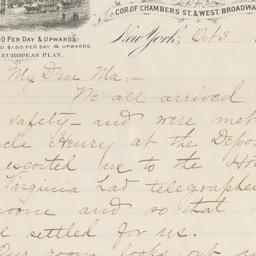 COR. OF CHAMBERS ST. & WEST. BROADWA
0 PER DAY & UPWARDS.
$1.50 PER DAY & UPWARDS.
EUROPEAN PLAN.
New York, Oct 3
My Dear Ma;-
We all arrived
safety - and were met
cle Henry at the Depot
escorted us to the Ho
Virginia had telegraphe
oome and so that
e settled for us.
Our room looks out